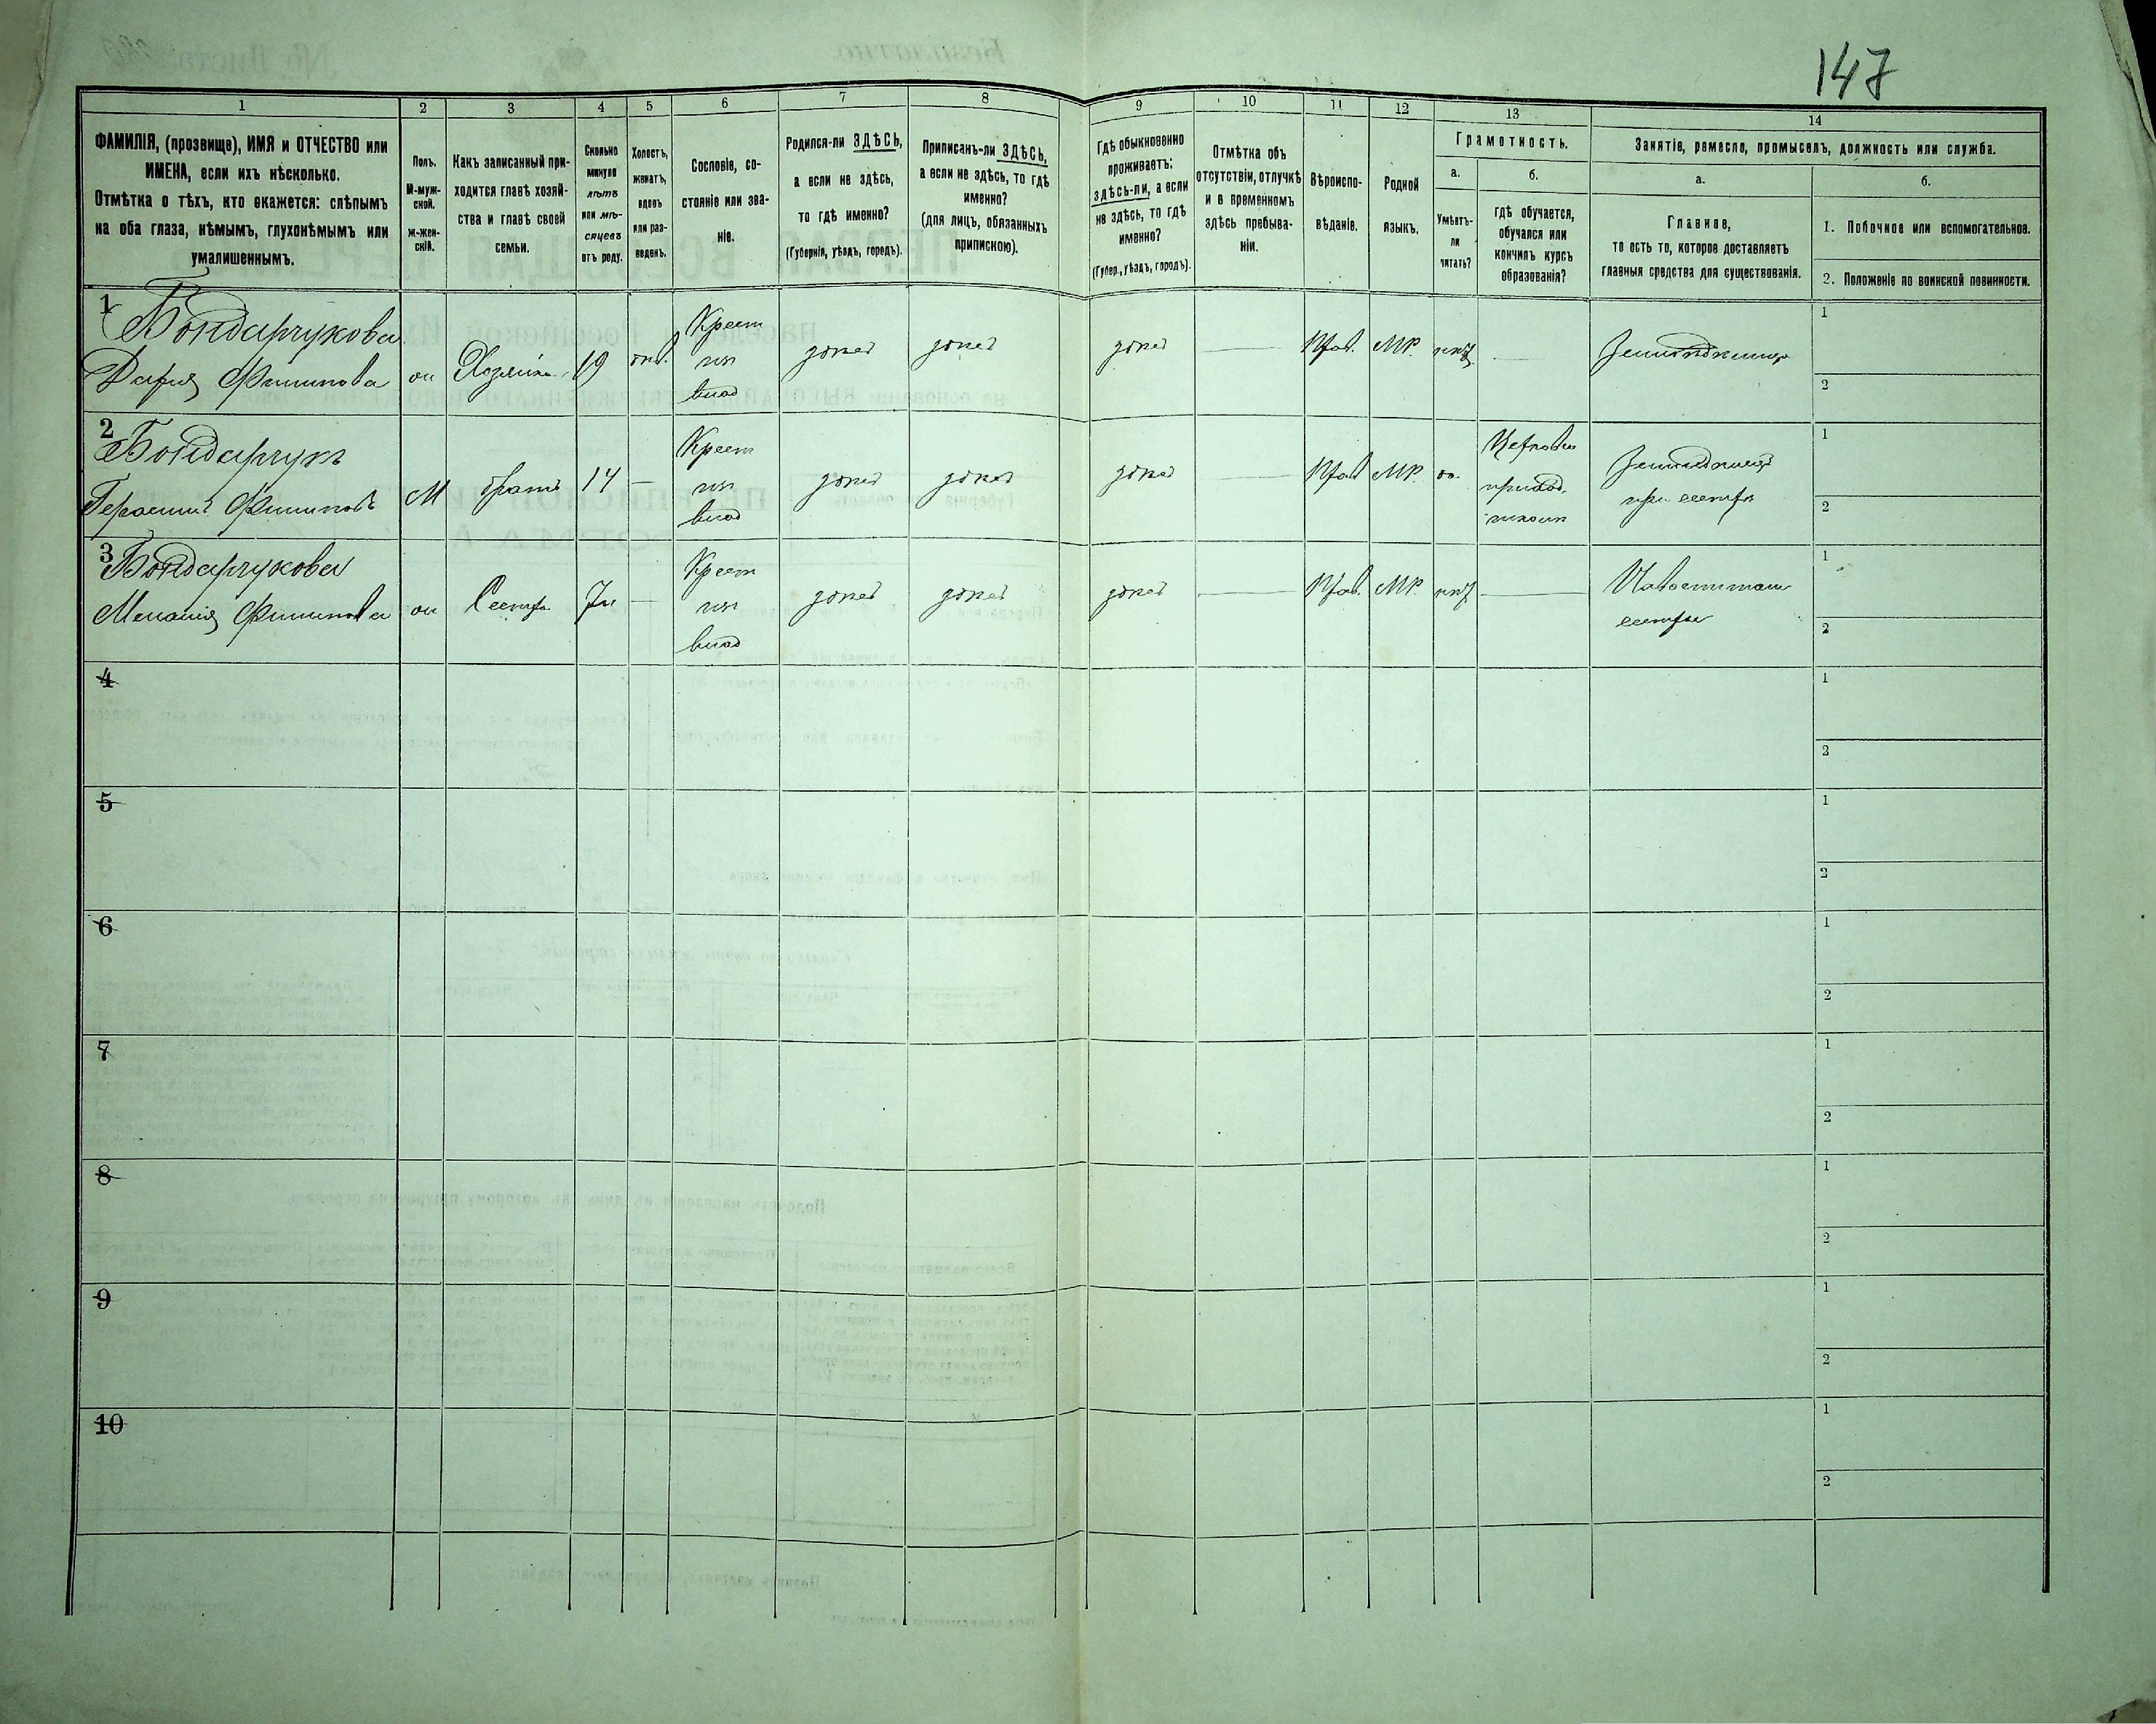 147
1
2
3
4
5
6
7
8
9
10
11
12
13
14
ФАМИЛІЯ, (прозвище), ИМЯ и ОТЧЕСТВО или
ИМЕНА, если ихъ нѣсколько.
Отмѣтка о тѣхъ, кто окажется: слѣпымъ
на оба глаза, нѣмымъ, глухонѣмымъ или
умалишеннымъ.
Полъ.
М-муж-
ской.
ж-жен-
скій.
Какъ записанный при-
ходится главѣ хозяй-
ства и главѣ своей
семьи.
Сколько
минуло
лѣтъ
или мѣ-
сяцевъ
отъ роду.
Холостъ,
женатъ,
вдовъ
или раз-
веденъ.
Сословіе, со-
стояніе или зва-
ніе.
Родился-ли ЗДѢСЬ,
а если не здѣсь,
то гдѣ именно?
(Губернія, уѣздъ, городъ).
Приписанъ-ли ЗДѢСЬ,
а если не здѣсь, то гдѣ
именно?
(для лицъ, обязанныхъ
припискою).
Гдѣ обыкновенно
проживаетъ:
здѣсь-ли, а если
не здѣсь, то гдѣ
именно?
(Губер., уѣздъ, городъ).
Отмѣтка объ
отсутствіи, отлучкѣ
и в временномъ
здѣсь пребыва-
ніи.
Вѣроиспо-
вѣданіе.
Родной
языкъ.
Грамотность.
а.
Умѣетъ-
ли
читать?
б.
гдѣ обучается,
обучался или
кончилъ курсъ
образованія?
Занятіе, ремесло, промыселъ, должность или служба.
а.
Главное,
то есть то, которое доставляетъ
главныя средства для существованія.
б.
1. Побочное или вспомогательное.
2. Положеніе по воинской повинности.
1
Бондарчукова
Дарія Филипова
Хозяйка
19
Крест
из
влад
здѣсь
здѣсь
здѣсь
Прав.
МР.
нѣт
1
2
2
Бондарчукъ
Герасимъ Филиповъ
М
братъ
14
Крест
из
влад
здѣсь
здѣсь
здѣсь
Прав
МР.
да
приход.
1
2
при сестрѣ
3
Бондарчукова
Меланія Филипова
Сестра
7
Крест
из
влад
здѣсь
здѣсь
здѣсь
Прав.
МР.
нѣт
сестры
1
2
4
1
2
5
1
2
6
1
2
7
1
2
8
1
2
9
1
2
10
1
2